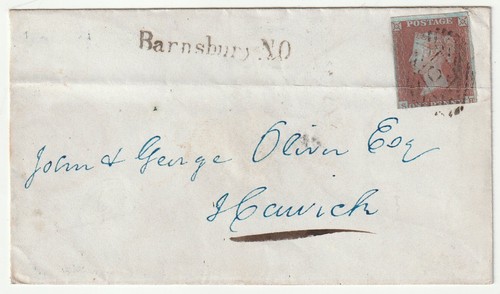 Barnsbury N.O
POSTAGE
John & George Oliver Esq
Hawick